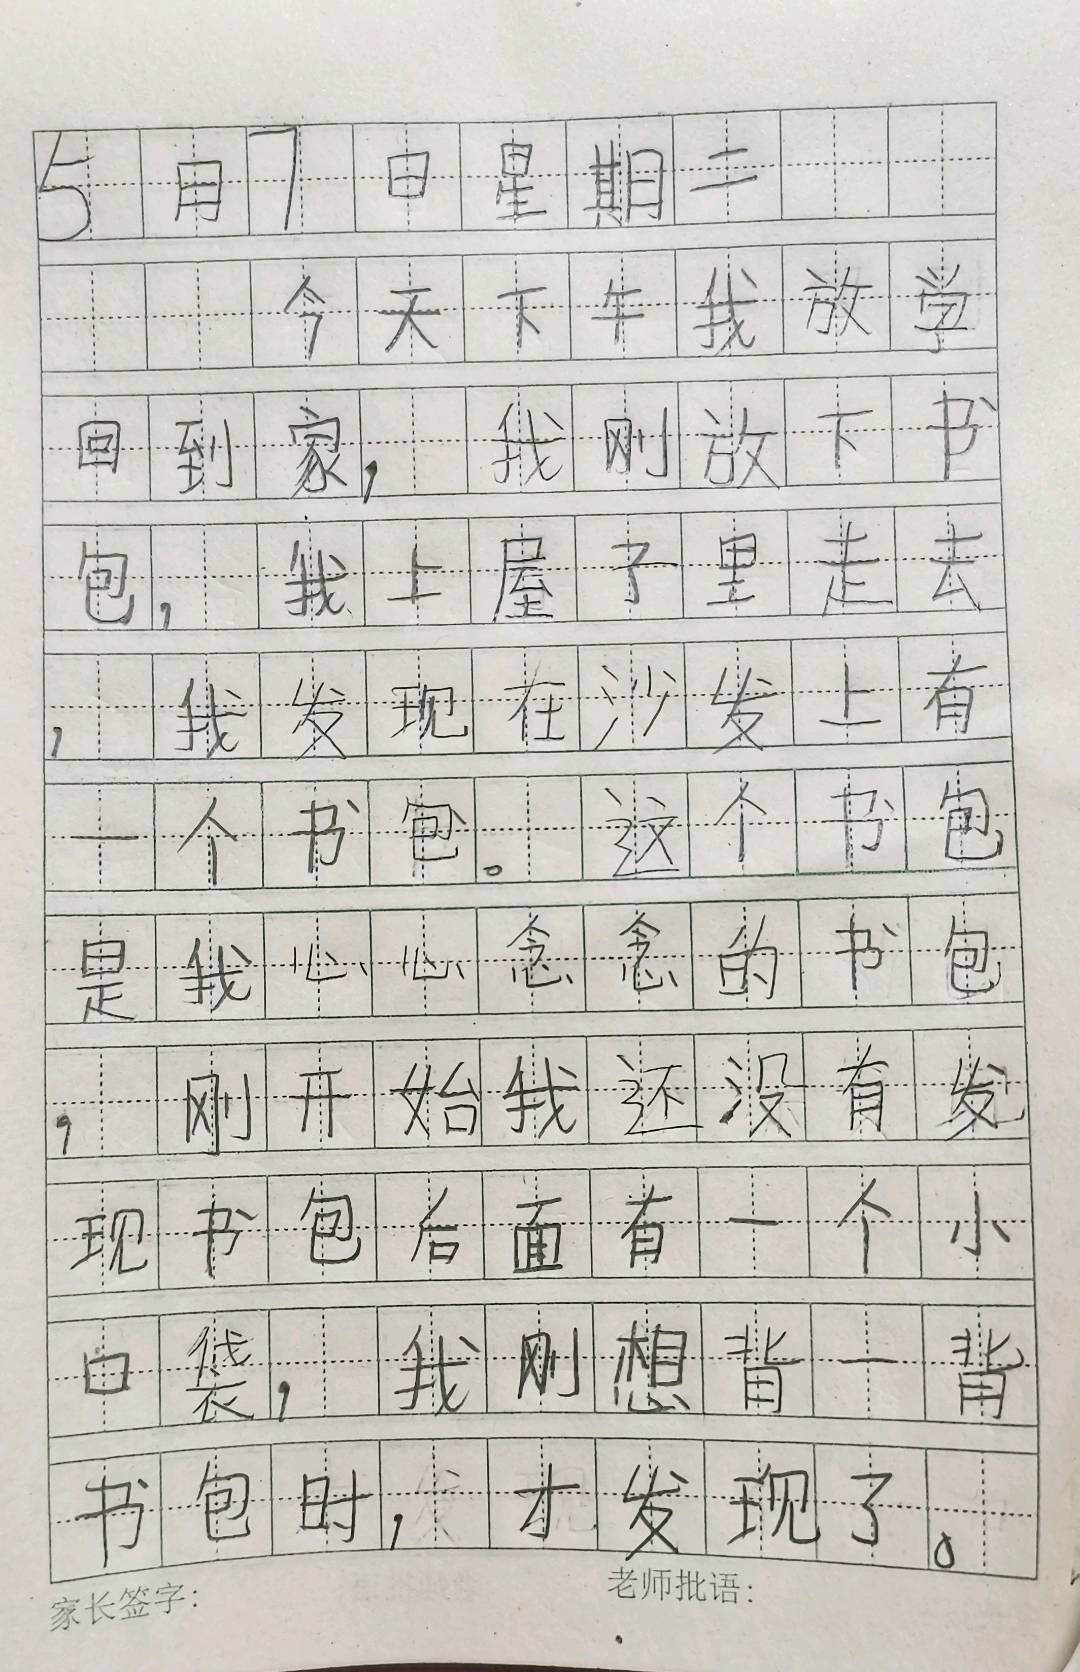 5月7日星期二
今天下午我放学
回到家，我刚放下书
包，我上屋子里走去
，我发现在沙发上有
一个书包。这个书包
是我心心念念的书包
，刚开始我还没有发
现书包后面有一个小
口袋，我刚想背一背
书包时，才发现了。
家长签字：
老师批语：